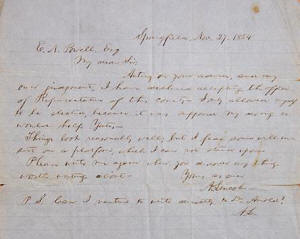 Springfield, Nov. 27, 1854
E. N. Powell, Esq
My dear Sir
Acting on your advice, and my
own judgment, I have declined accepting the office
of Representative of this county. I only allowed myself
to be elected, because it was supposed my doing so
would help Yates.
Things look reasonably well; but I fear some will
on a platform, which I can not stand upon.
Please write me again when you discover any thing
worth writing about.
Yours as ever
A. Lincoln
P.S. Can I venture to write directly to Dr. Arnold?
A.L.